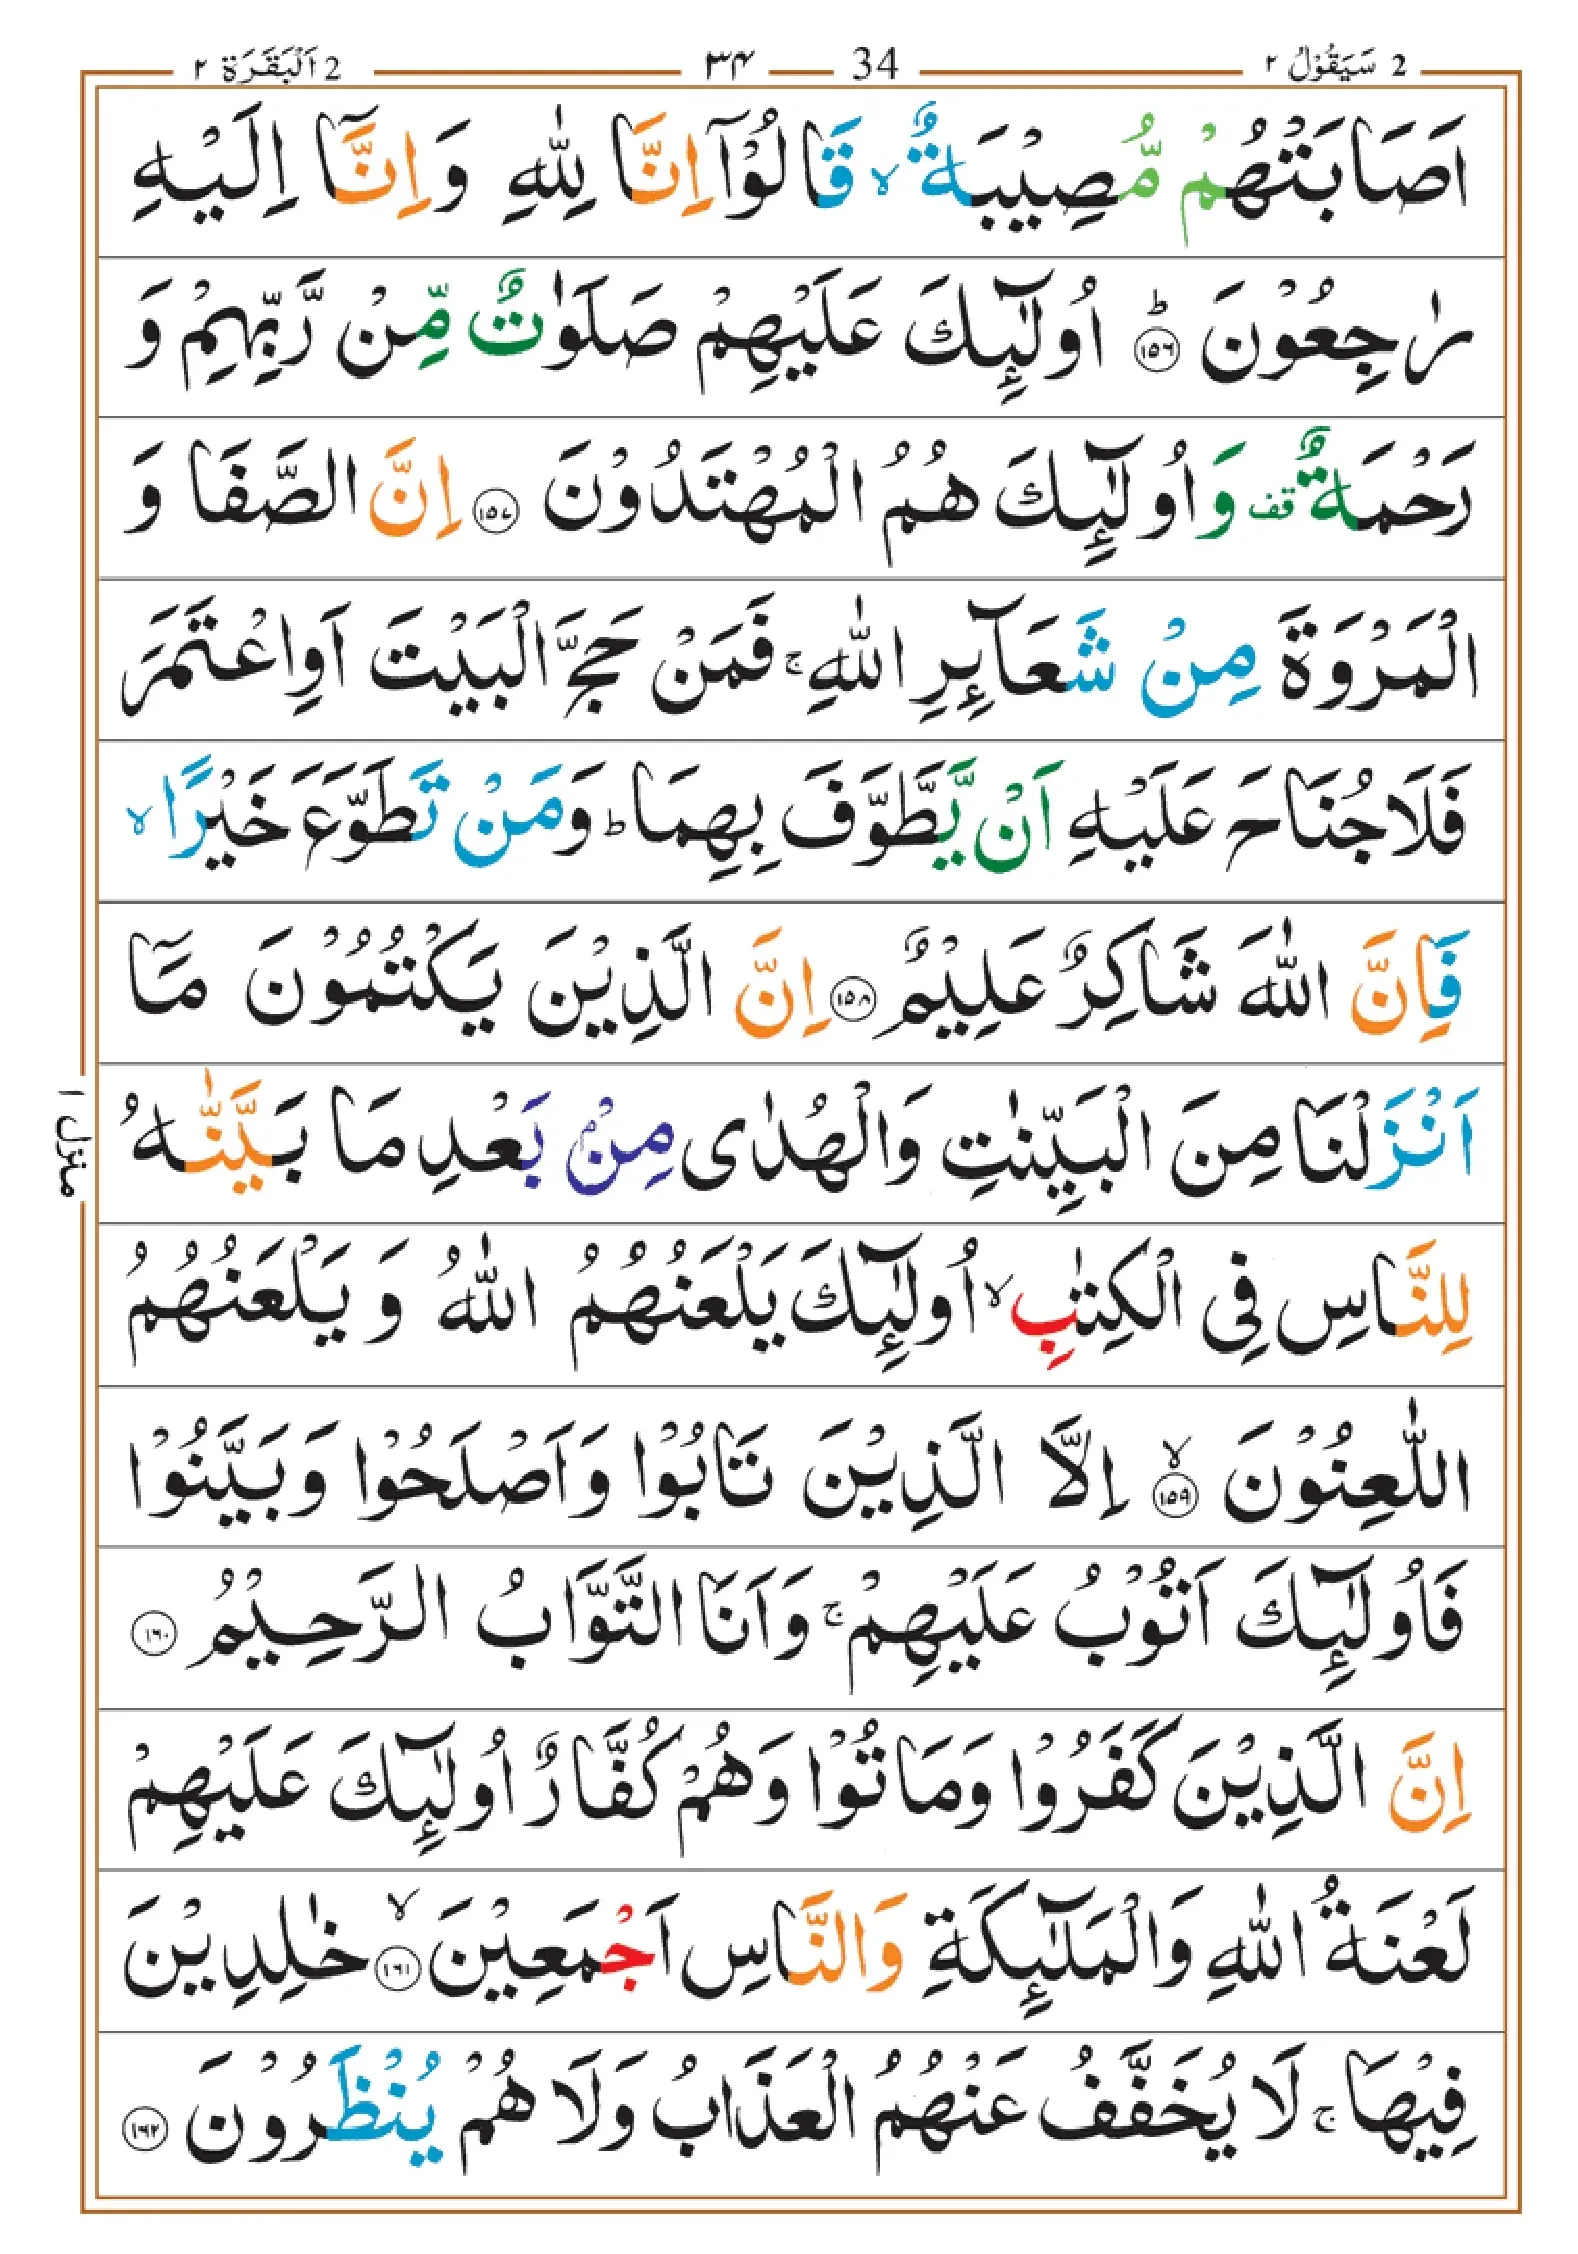 2 سَيَقُوْلُ ٢
34 ٣٤
2 اَلْبَقَرَة ٢
اَصَابَتْهُمْ مُّصِيْبَةٌ ۙ قَالُوْٓا اِنَّا لِلّٰهِ وَ اِنَّآ اِلَيْهِ
رٰجِعُوْنَ ؕ ﴿۱۵۶﴾ اُولٰٓئِكَ عَلَيْهِمْ صَلَوٰتٌ مِّنْ رَّبِّهِمْ وَ
رَحْمَةٌ قف وَ اُولٰٓئِكَ هُمُ الْمُهْتَدُوْنَ ﴿۱۵۷﴾ اِنَّ الصَّفَا وَ
الْمَرْوَةَ مِنْ شَعَآئِرِ اللّٰهِ ۚ فَمَنْ حَجَّ الْبَيْتَ اَوِاعْتَمَرَ
فَلَاجُنَاحَ عَلَيْهِ اَنْ يَّطَّوَّفَ بِهِمَا ؕ وَمَنْ تَطَوَّعَ خَيْرًا ۙ
فَاِنَّ اللّٰهَ شَاكِرٌ عَلِيْمٌ ﴿۱۵۸﴾ اِنَّ الَّذِيْنَ يَكْتُمُوْنَ مَآ
اَنْزَلْنَا مِنَ الْبَيِّنٰتِ وَالْهُدٰى مِنْۢ بَعْدِ مَا بَيَّنّٰهُ
لِلنَّاسِ فِى الْكِتٰبِ ۙ اُولٰٓئِكَ يَلْعَنُهُمُ اللّٰهُ وَ يَلْعَنُهُمُ
اللّٰعِنُوْنَ ۙ ﴿۱۵۹﴾ اِلَّا الَّذِيْنَ تَابُوْا وَاَصْلَحُوْا وَبَيَّنُوْا
فَاُولٰٓئِكَ اَتُوْبُ عَلَيْهِمْ ۚ وَاَنَا التَّوَّابُ الرَّحِيْمُ ﴿۱۶۰﴾
اِنَّ الَّذِيْنَ كَفَرُوْا وَمَاتُوْا وَهُمْ كُفَّارٌ اُولٰٓئِكَ عَلَيْهِمْ
لَعْنَةُ اللّٰهِ وَالْمَلٰٓئِكَةِ وَالنَّاسِ اَجْمَعِيْنَ ۙ ﴿۱۶۱﴾ خٰلِدِيْنَ
فِيْهَا ۚ لَا يُخَفَّفُ عَنْهُمُ الْعَذَابُ وَلَا هُمْ يُنْظَرُوْنَ ﴿۱۶۲﴾
منزل ١